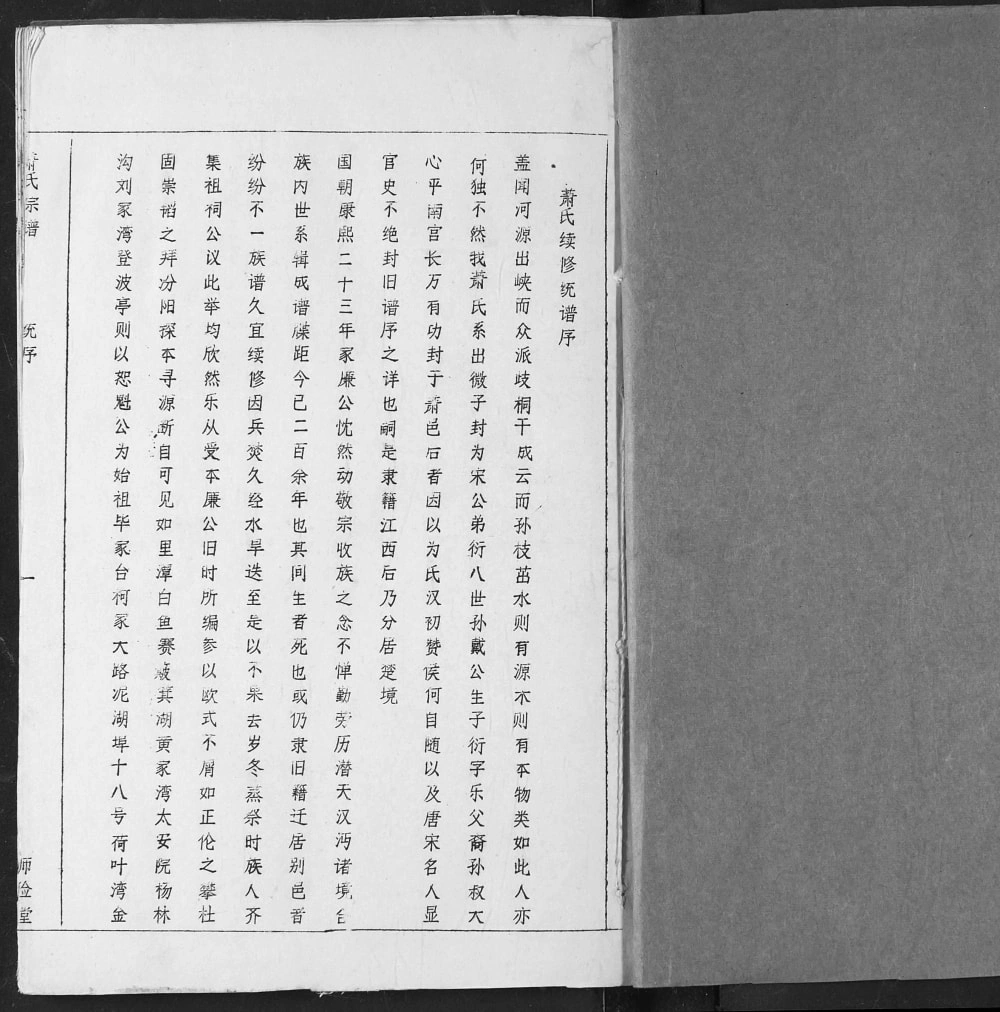 萧氏续修统谱序
盖闻河源出峡而众派歧桐干成云而孙枝茁水则有源木则有本物类如此人亦
何独不然我萧氏系出微子封为宋公弟衍八世孙戴公生子衍字乐父裔孙叔大
心平南宫长万有功封于萧邑后者因以为氏汉初赞侯何自随以及唐宋名人显
官史不绝封旧谱序之详也嗣是隶籍江西后乃分居楚境
国朝康熙二十三年家廉公忱然动敬宗收族之念不惮勤劳历潜天汉沔诸境合
族内世系辑成谱牒距今已二百余年也其间生者死也或仍隶旧籍迁居别邑晋
纷纷不一族谱久宜续修因兵燹久经水旱迭至是以不果去岁冬蒸祭时族人齐
集祖祠公议此举均欣然乐从爰本廉公旧时所编参以欧式不屑如正伦之攀杜
固崇韬之拜汾阳探本寻源断自可见如里潭白鱼赛坡箕湖黄家湾太安院杨林
沟刘家湾登波亭则以恕魁公为始祖毕家台柯家大路泥湖埠十八号荷叶湾金
萧氏宗谱
统序
一
师俭堂